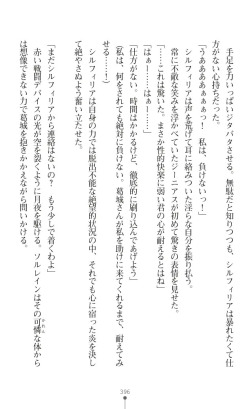 手足を力いっぱいジタバタさせる。無駄だと知りつつも、シルフィリアは暴れたくて仕
方がない心持ちだった。
「うああああぁぁぁっ！　私は、負けないっ！」
シルフィリアは声を荒げて耳に絡みついた淫らな自分を振り払う。
常に不敵な笑みを浮かべていたジーニアスが初めて驚きの表情を見せた。
「……これは驚いた。まさか性的快楽に弱い君の心が耐えるとはね」
「はぁ……はぁ……！」
「仕方がない。時間はかかるけど、徹底的に刷り込んであげよう」
（私は、何をされても絶対に負けない。葛城さんが助けに来てくれるまで、耐えてみ
せる……！）
シルフィリアは自身の力では脱出不可能な絶望的状況の中、それでも心に宿った炎を決し
て絶やさぬよう奮い立たせた。
「まだシルフィリアから連絡はないの？　もう少しで着くわよ」
赤い戦闘デバイスの光が空を裂くように月夜を駆ける。ソルレインはその可憐な体から
は想像できない力で葛城を抱きかかえながら問いかける。
396